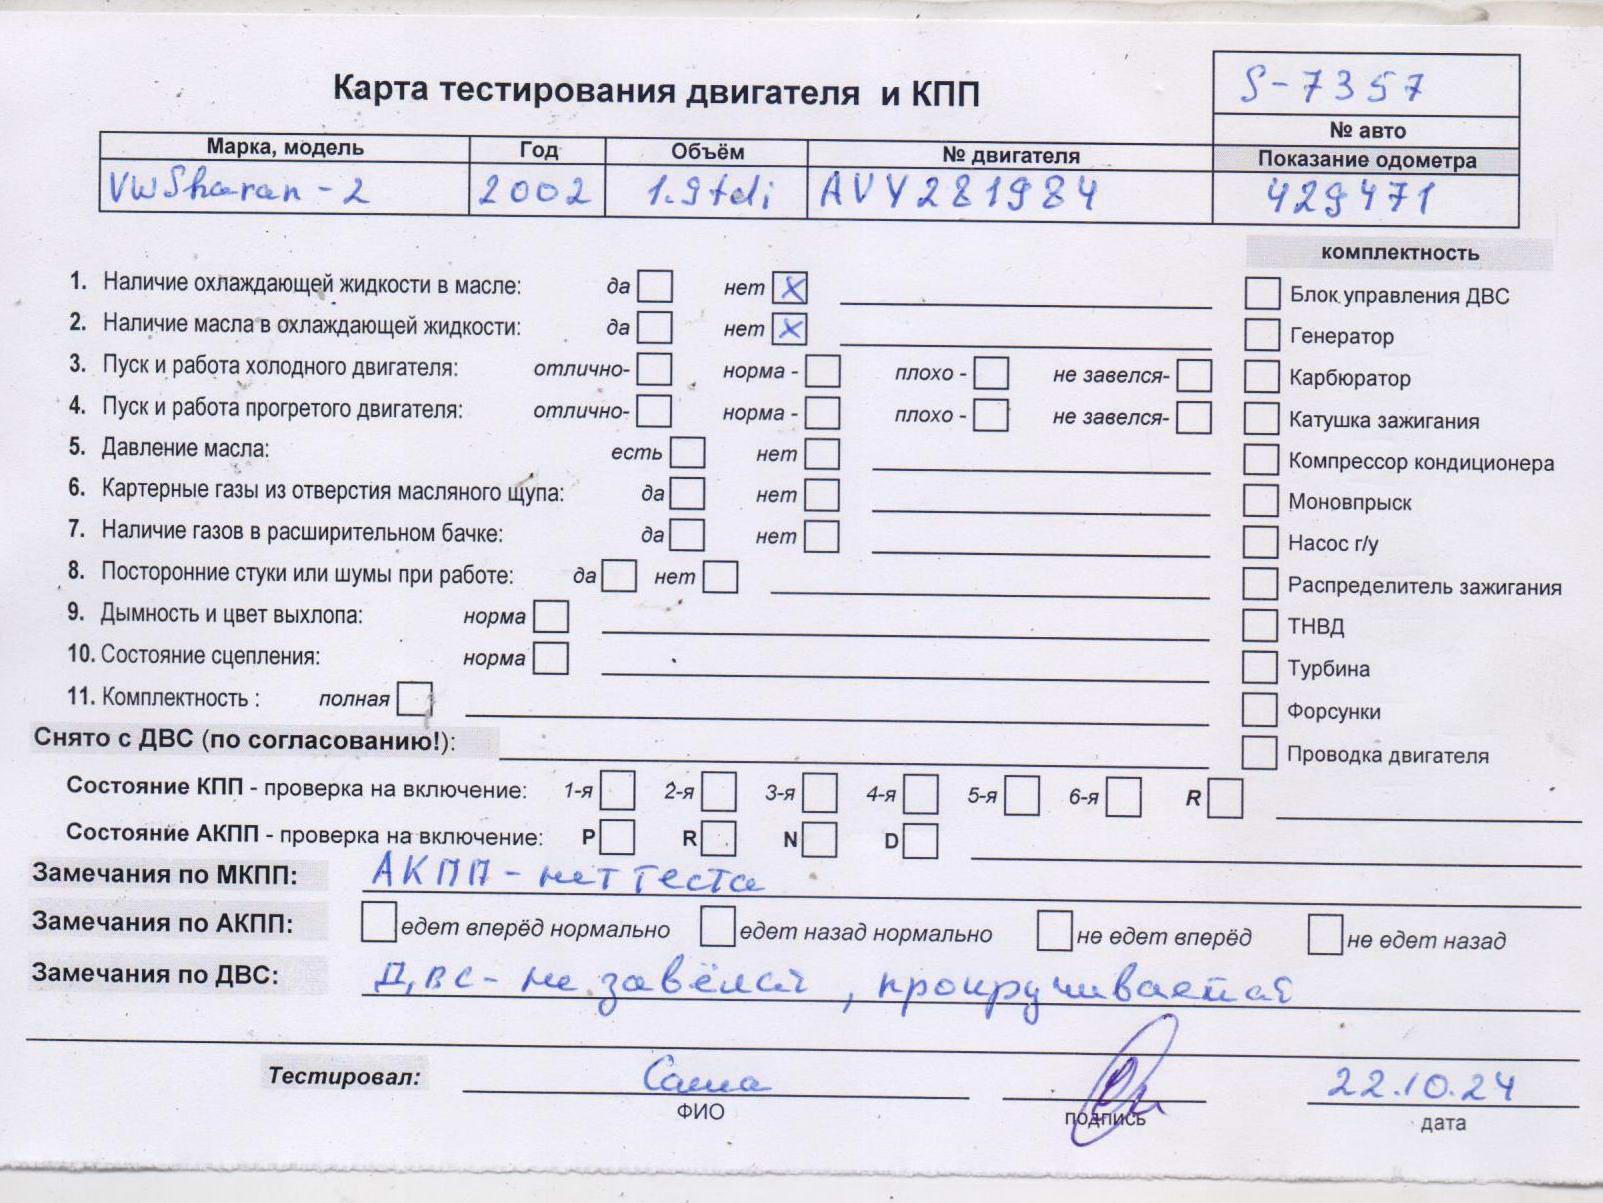 Карта тестирования двигателя и КПП
S-7357
№ авто
Марка, модель Год Объём № двигателя Показание одометра
VW Sharan-2 2002 1.9 tdi AVY281984 429471
комплектность
1. Наличие охлаждающей жидкости в масле: да нет X
Блок управления ДВС
2. Наличие масла в охлаждающей жидкости: да нет X
Генератор
3. Пуск и работа холодного двигателя: отлично- норма - плохо - не завелся-
Карбюратор
4. Пуск и работа прогретого двигателя: отлично- норма - плохо - не завелся-
Катушка зажигания
5. Давление масла: есть нет
Компрессор кондиционера
6. Картерные газы из отверстия масляного щупа: да нет
Моновпрыск
7. Наличие газов в расширительном бачке: да нет
Насос г/у
8. Посторонние стуки или шумы при работе: да нет
Распределитель зажигания
9. Дымность и цвет выхлопа: норма
ТНВД
10. Состояние сцепления: норма
Турбина
11. Комплектность : полная
Форсунки
Снято с ДВС (по согласованию!):
Проводка двигателя
Состояние КПП - проверка на включение: 1-я 2-я 3-я 4-я 5-я 6-я R
Состояние АКПП - проверка на включение: P R N D
Замечания по МКПП: АКПП - нет теста
Замечания по АКПП: едет вперёд нормально едет назад нормально не едет вперёд не едет назад
Замечания по ДВС: ДВС - не завёлся, прокручивается
Тестировал: Саша 22.10.24
ФИО подпись дата